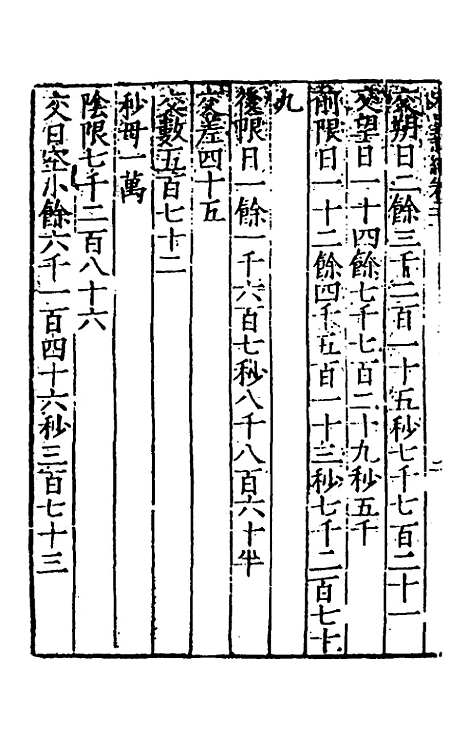 交朔日二餘三千二百一十五秒七千七百二十一
交望日一十四餘七千七百二十九秒五千
前限日一十二餘四千五百一十三秒七千二百七十
九
後限日一餘一千六百七秒八千八百六十半
交差四十五
交數五百七十二
秒母一萬
陰限七千二百八十六
交日空小餘六千一百四十六秒三百七十三